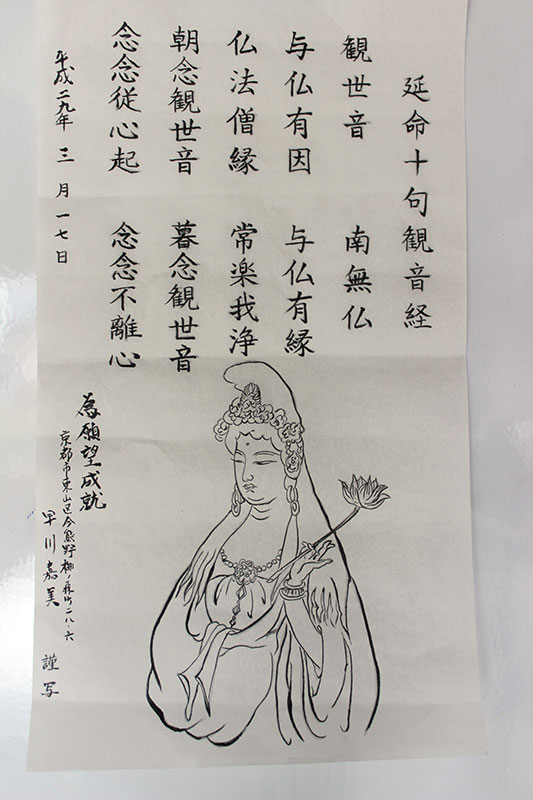 延命十句観音経
観世音　南無仏
与仏有因　与仏有縁
仏法僧縁　常楽我浄
朝念観世音　暮念観世音
念念従心起　念念不離心
平成二九年　三　月　一七日
為願望成就
京都市東山区今熊野柳ノ森町二八ノ六
早川嘉美　謹写